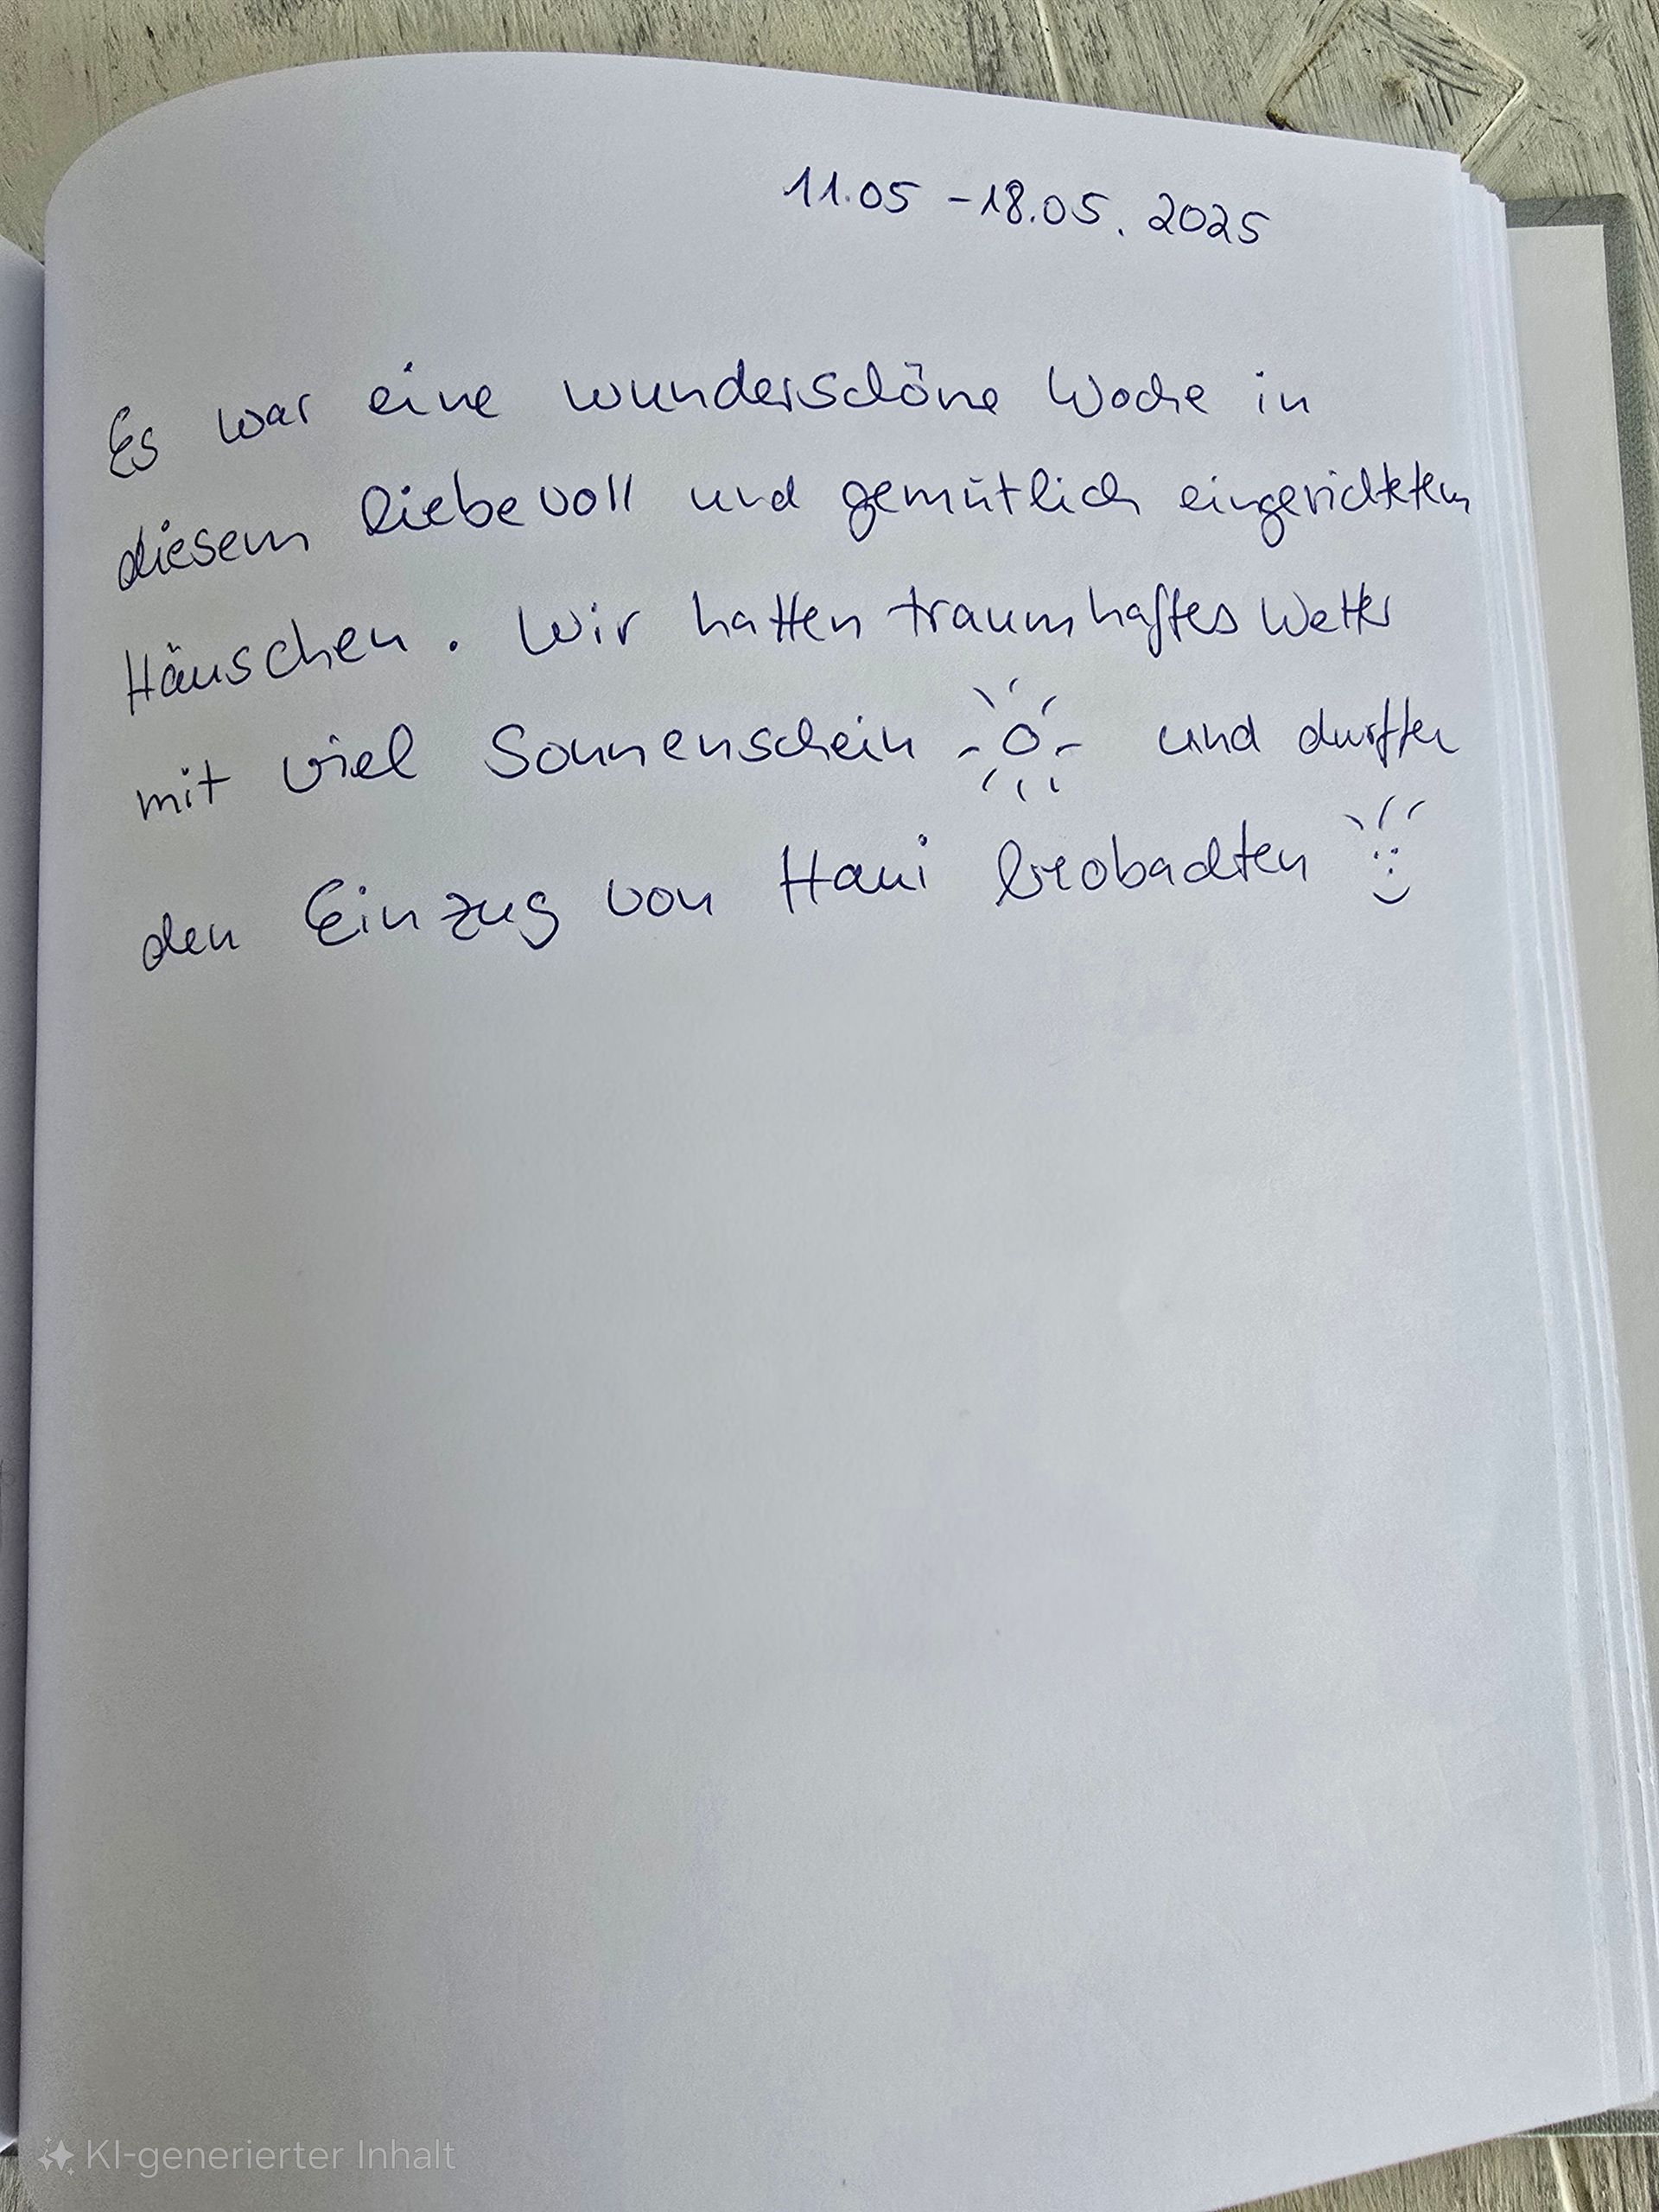 11.05 - 18.05. 2025
Es war eine wunderschöne Woche in
diesem liebevoll und gemütlich eingerichteten
Häuschen. Wir hatten traumhaftes Wetter
mit viel Sonnenschein und durften
den Einzug von Hawi beobachten
KI-generierter Inhalt